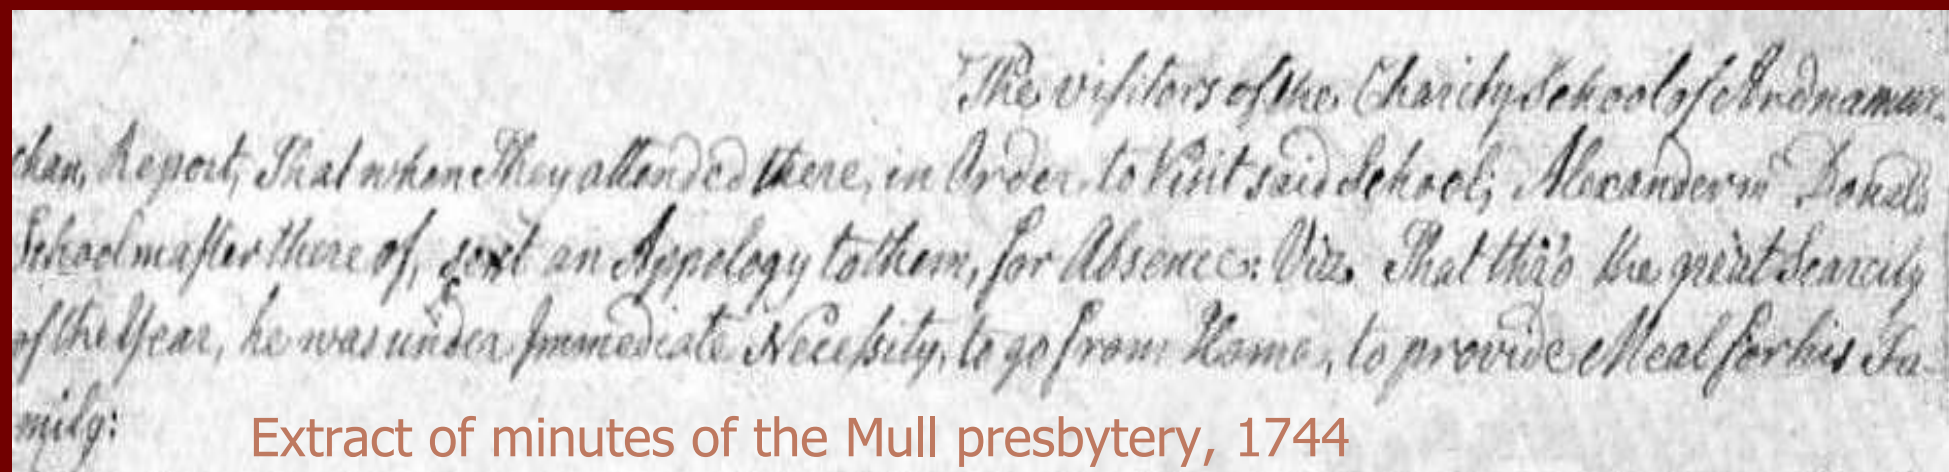 The visitors of the Charity School of Ardnamur-
chan, Report, That when They attended there, in Order to Visit said School; Alexander mᶜ Donald
Schoolmaster there of, sent an Appology to them, for Absence: Viz. That thro the great Scarcity
of the Year, he was under Immediate Necessity, to go from Home, to provide Meal for his Fa-
mily:
Extract of minutes of the Mull presbytery, 1744